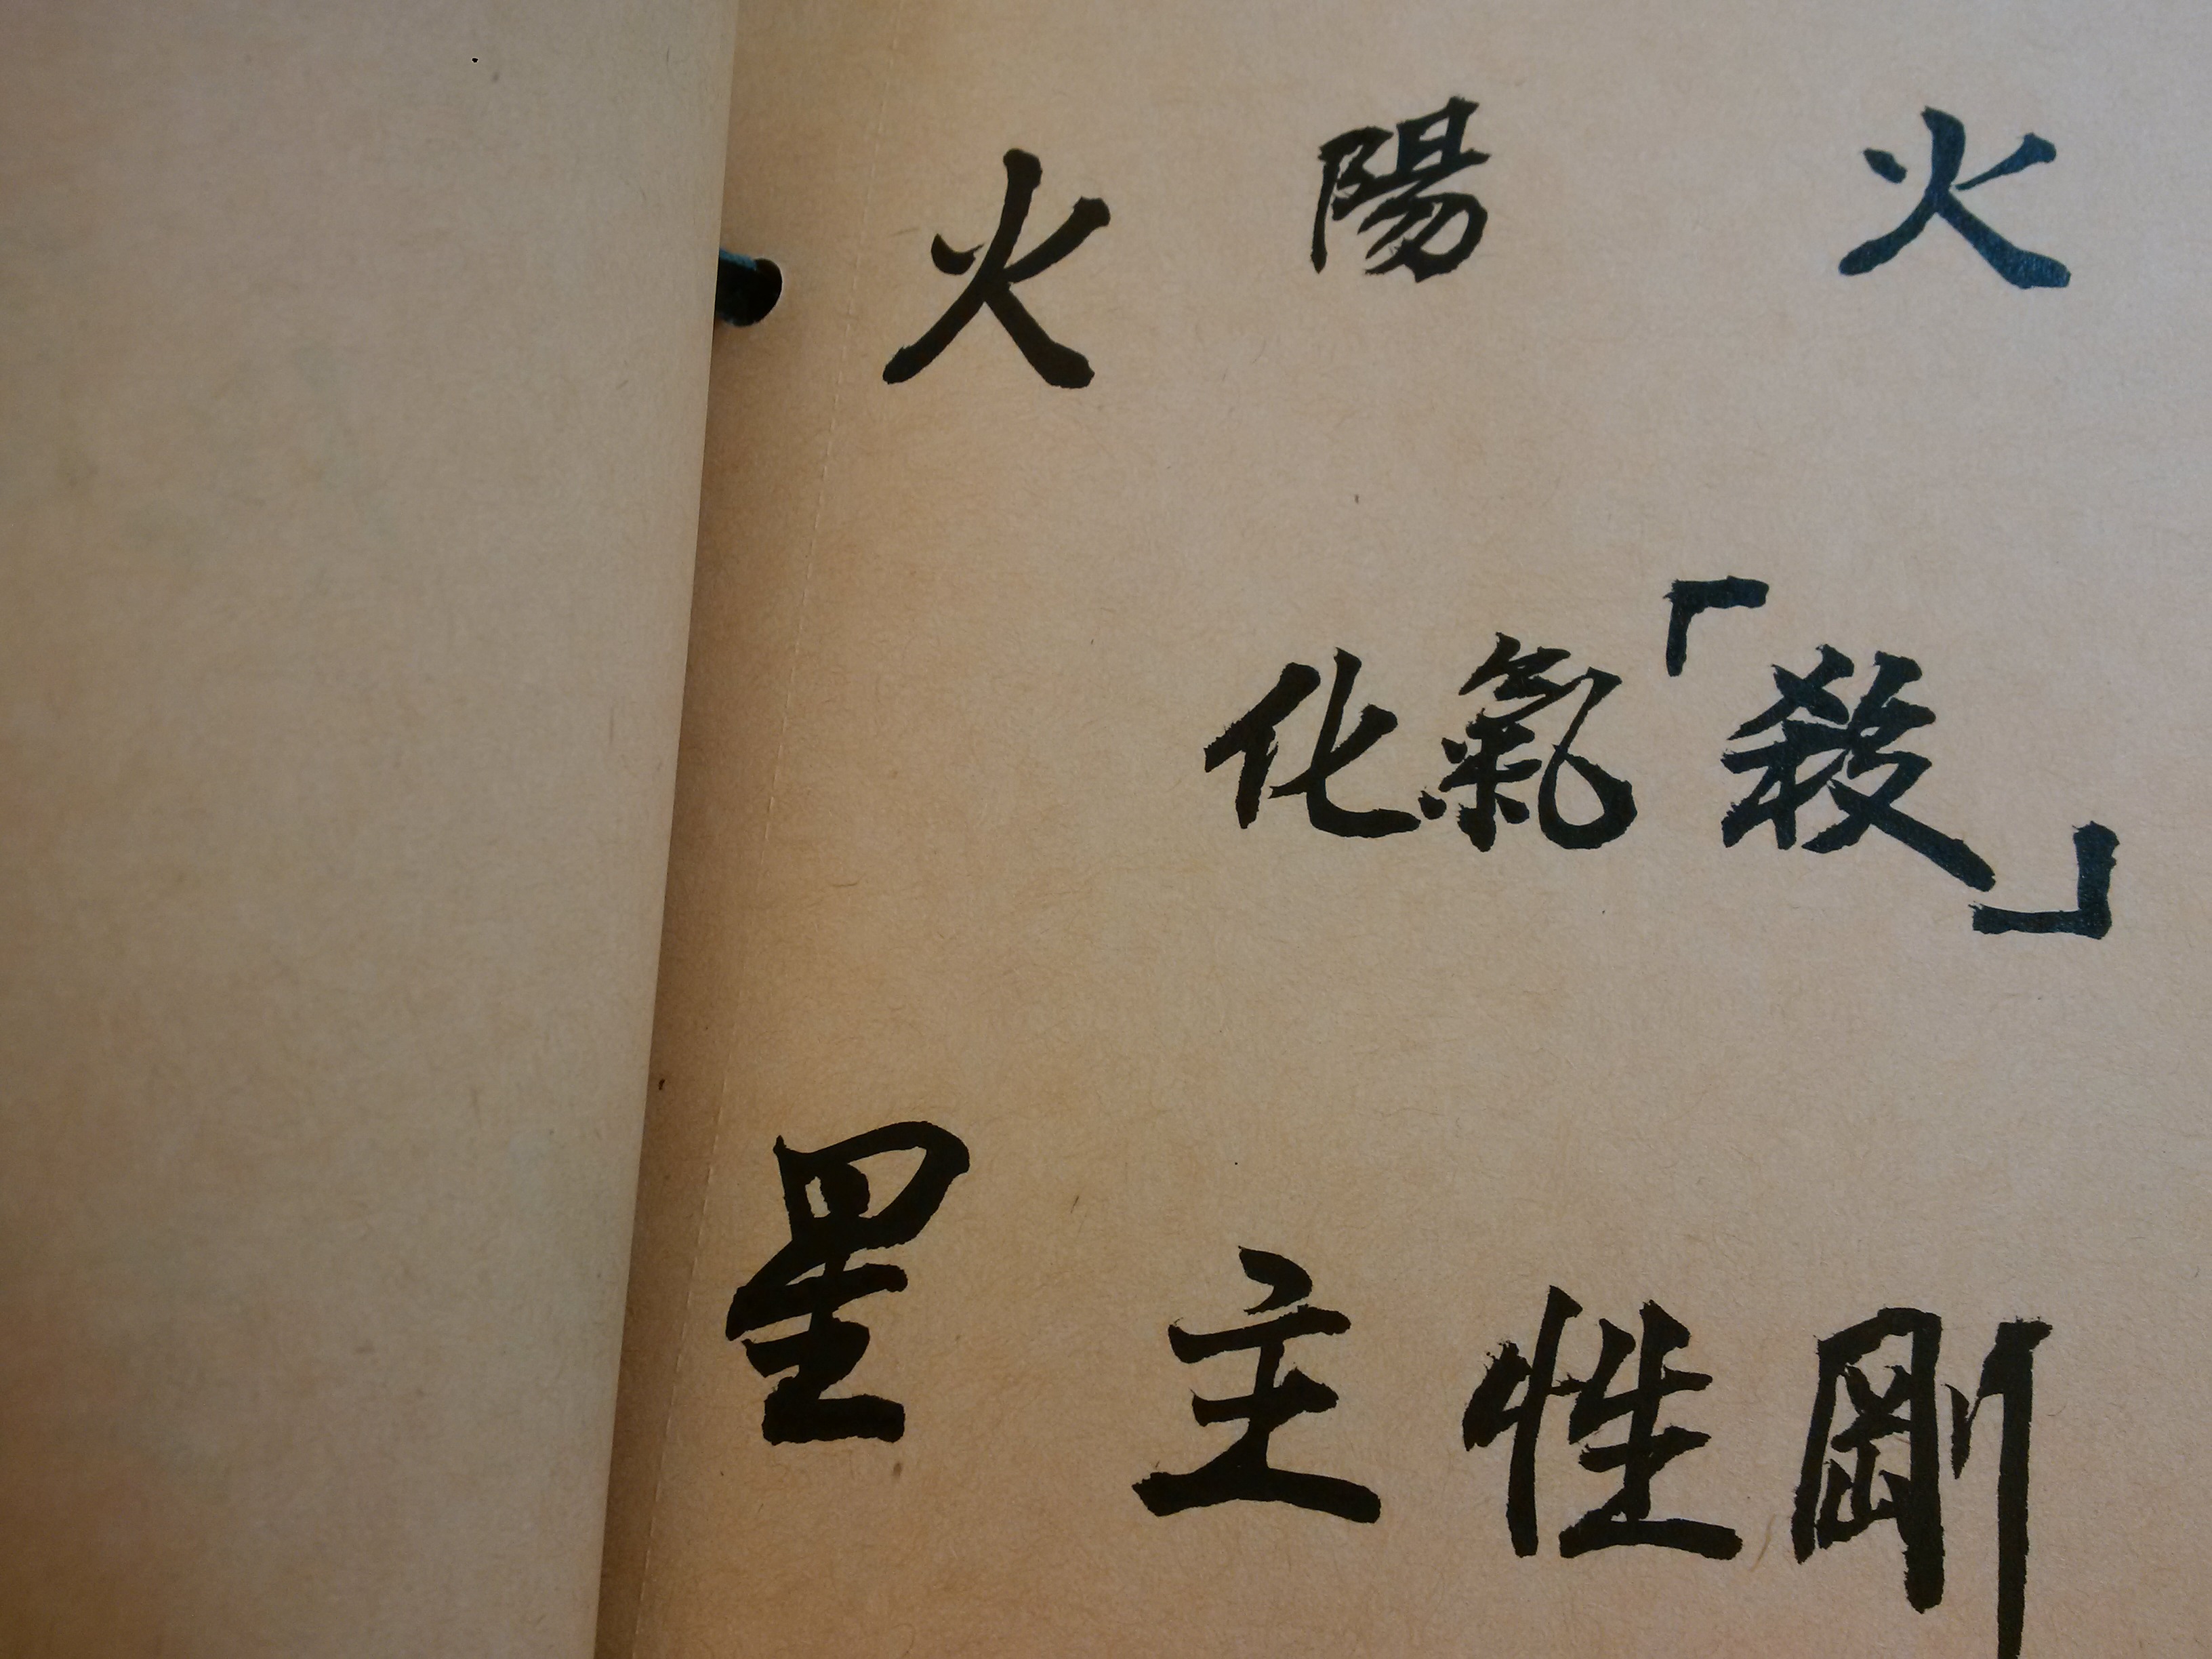 火 陽 火
化氣「殺」
星 主性剛